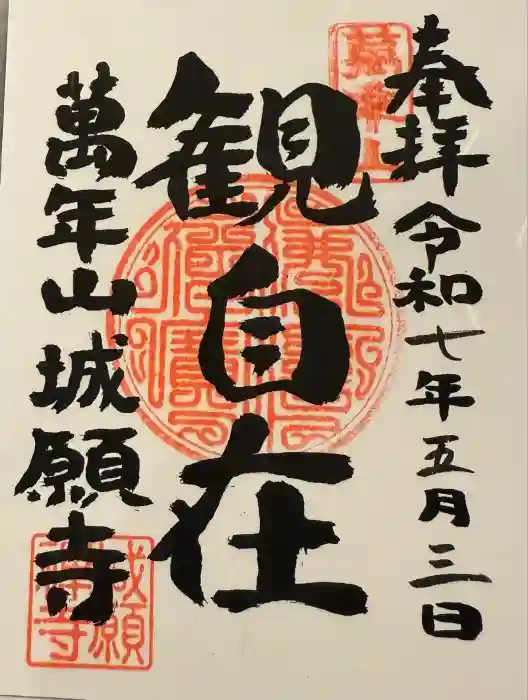 奉拝 令和七年五月三日
観自在
萬年山城願寺
城願
禅寺